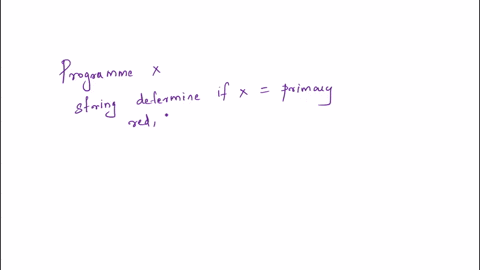 Programme x
string determine if x = primary
red,